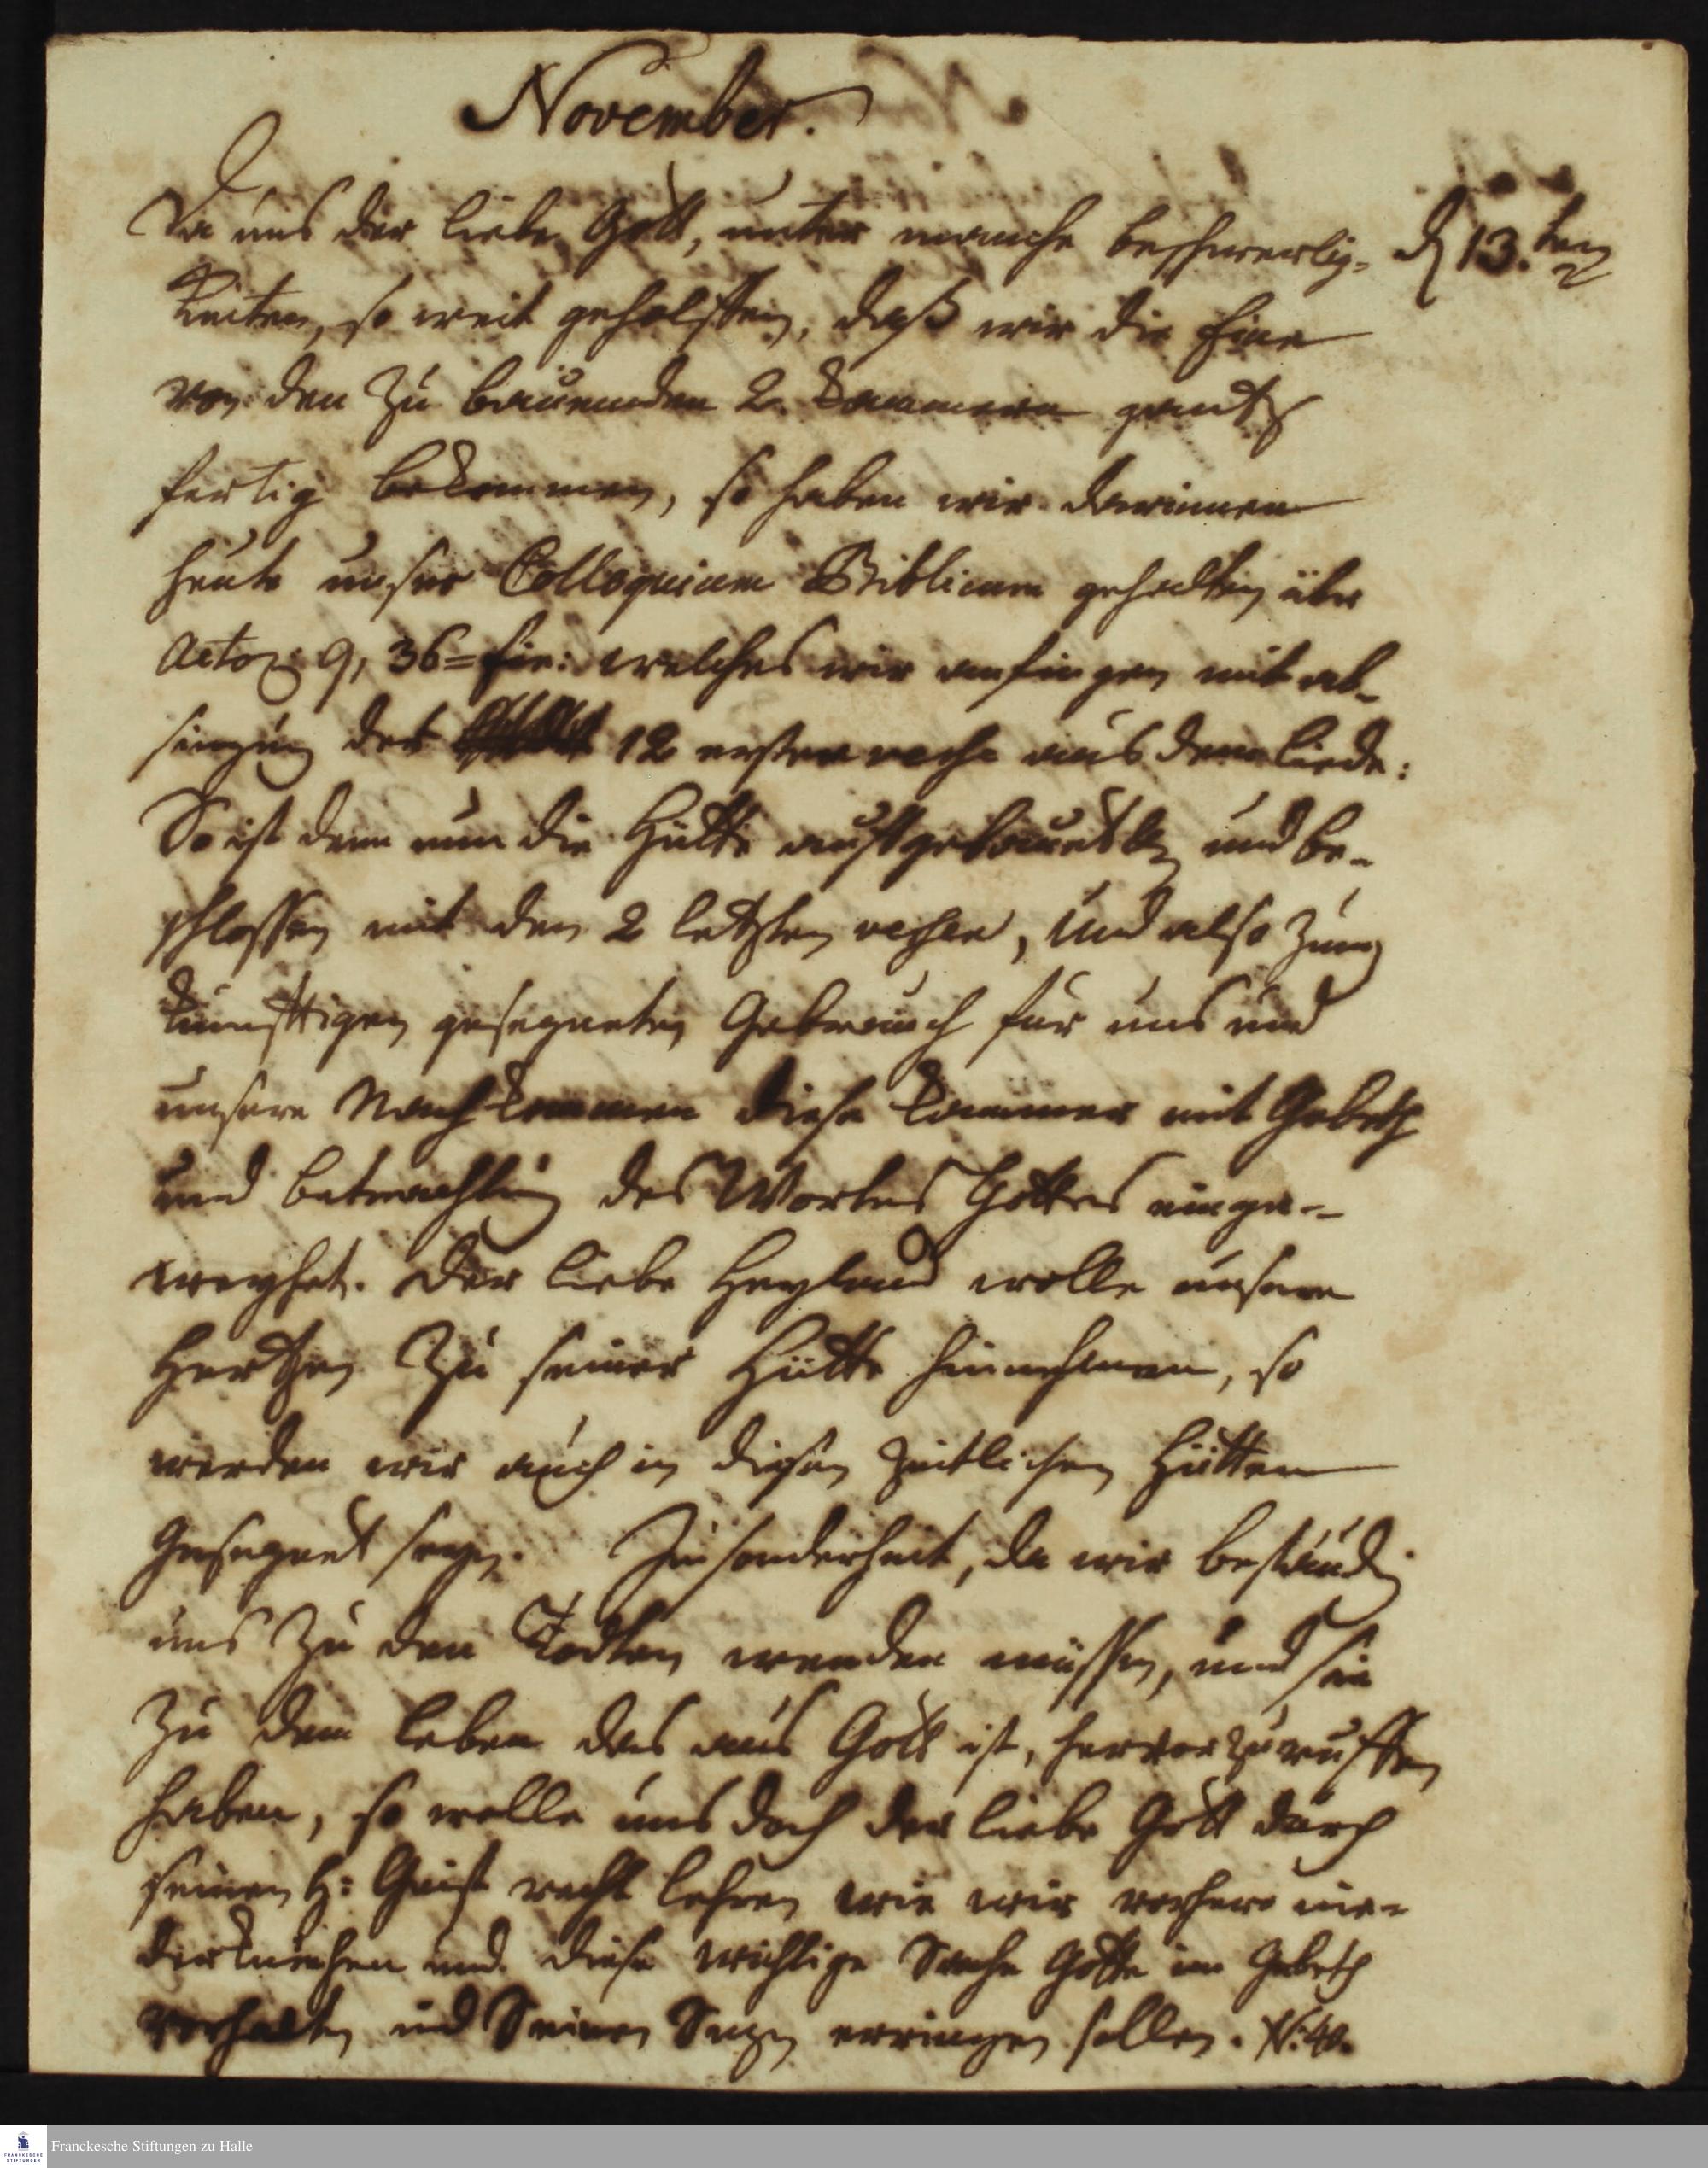 November.
Da uns der liebe Gott, unter manche beschwerlig- d 13.ten
keiten, so weit geholffen, daß wir die eine
von den zu bauenden 2. Kammern gantz
fertig bekommen, so haben wir darinnen
heute unser Colloquium Biblicum gehalten über
Actor: 9, 36=fin: welches wir anfingen mit ab-
singung der 12 ersten verse aus dem Liede:
So ist denn nun die Hütte auffgebauet und be-
schlossen mit den 2 letzten versen, und also zum
künfftigen gesegneten Gebrauch für uns und
unsere Nachkommen diese Kammer mit Gebeth
und betrachtung des Wortes Gottes einge-
weyhet. Der liebe Heyland wolle unsere
Hertzen zu seiner Hütte hinnehmen, so
werden wir auch in diesen zeitlichen Hütten
Gesegnet seyn. Insonderheit, da wir beständig
uns zu den Todten wenden müssen, und sie
zu dem Leben das aus Gott ist, hervorzuruffen
haben, so wolle uns doch der liebe Gott durch
seinen H: Geist recht lehren wie wir vorhero nie-
derkniehen und diese wichtige Sache Gotte im Gebeth
vorhalten und Seinen Segen erringen sollen. N: 40.
Franckesche Stiftungen zu Halle
FRANCKESCHE
STIFTUNGEN